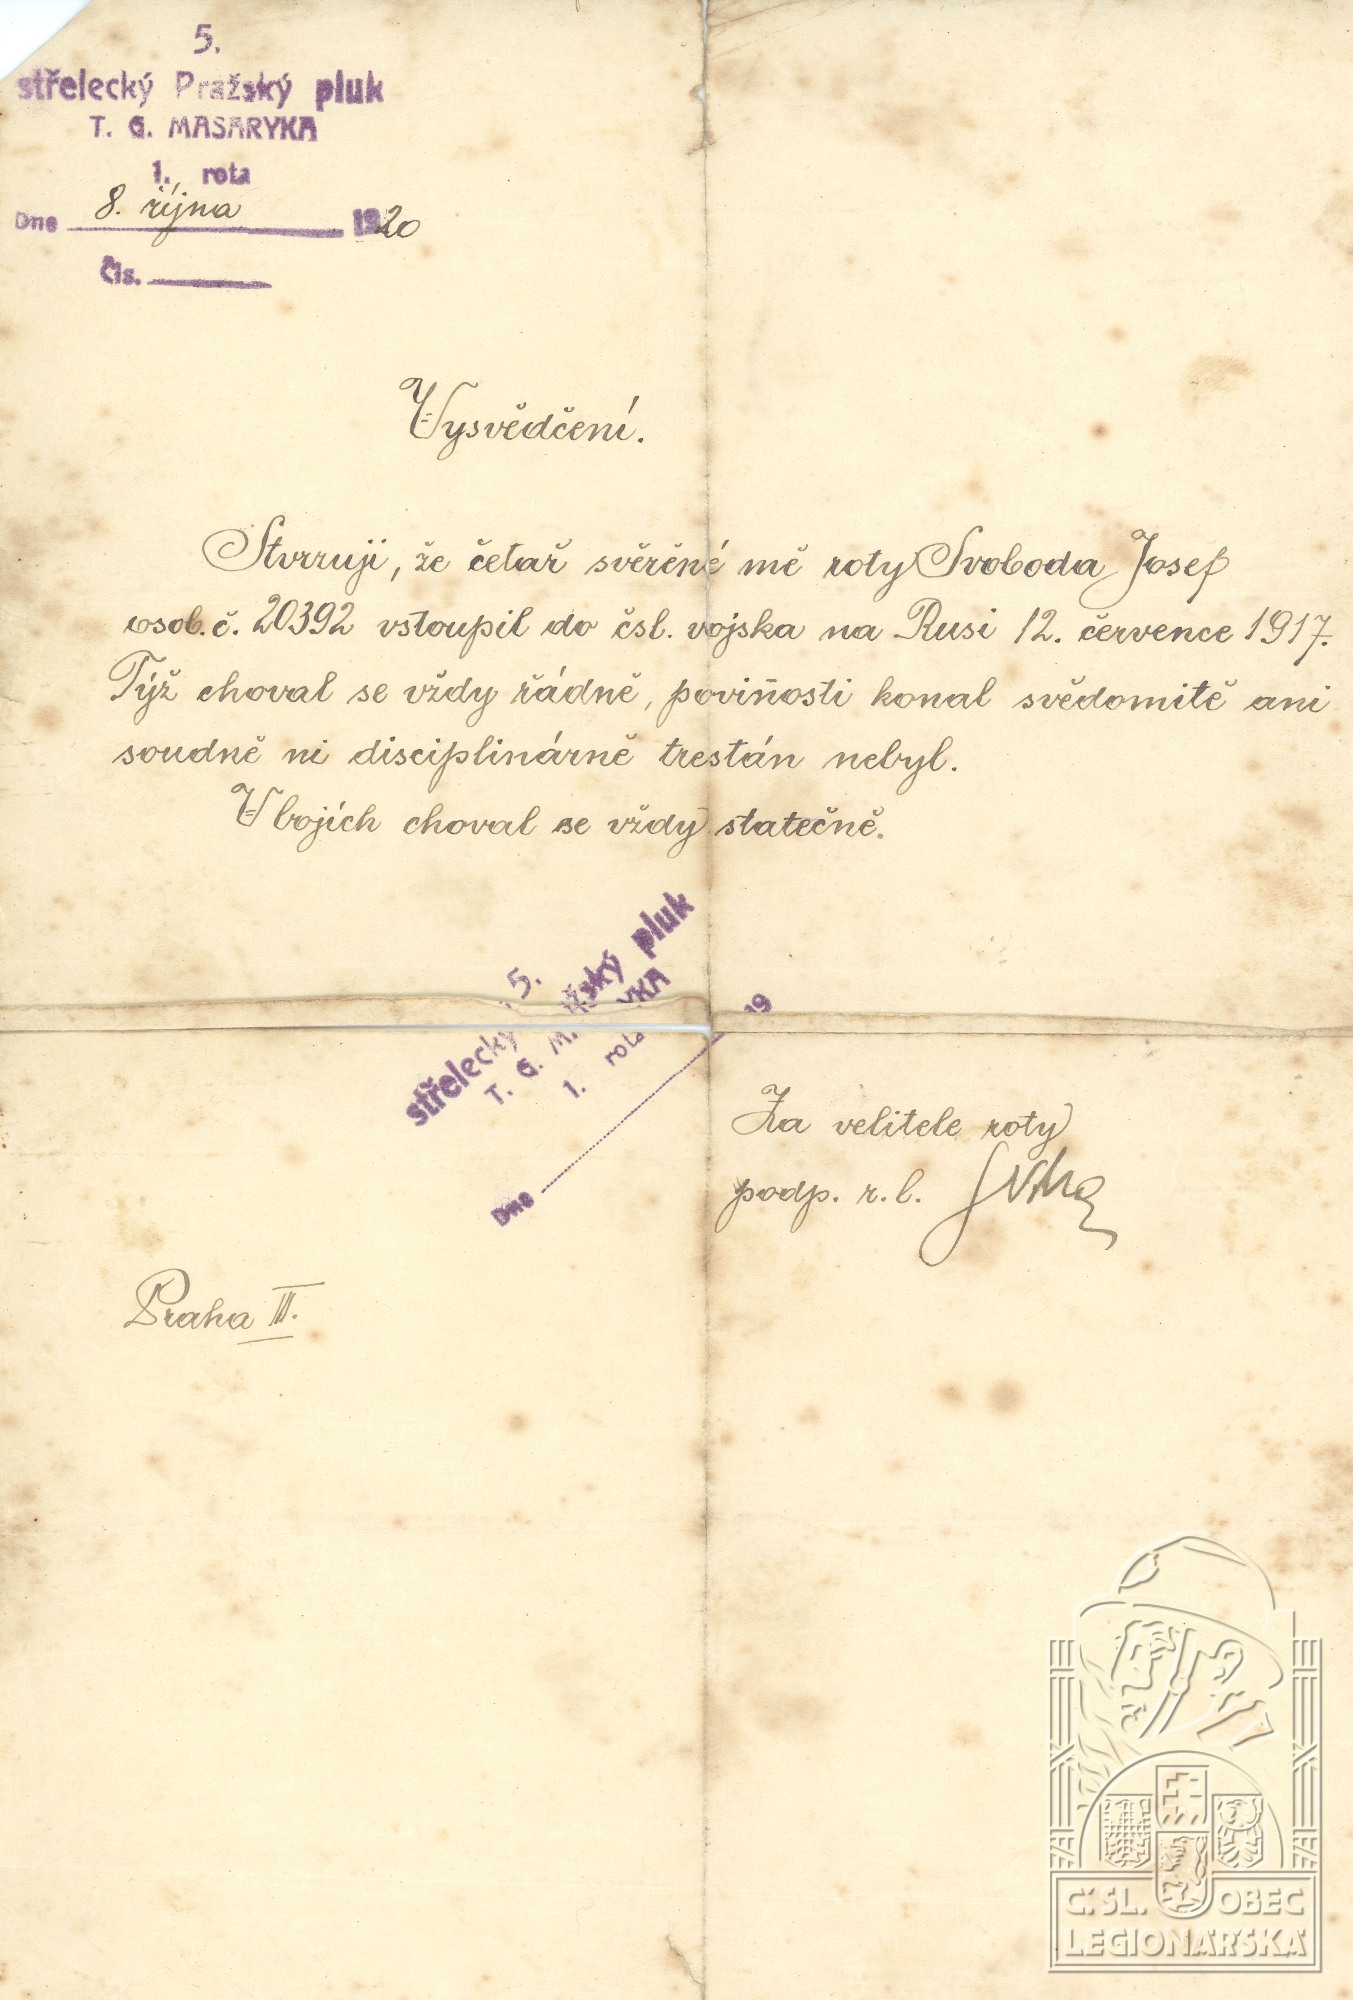 5.
střelecký Pražský pluk
T. G. MASARYKA
1. rota
Dne 8. října 1920
Čís.
Vysvědčení.
Stvrzuji, že četař svěřéné mě roty Svoboda Josef
osob. č. 20392 vstoupil do čsl. vojska na Rusi 12. července 1917.
Týž choval se vždy řádně, poviňosti konal svědomitě ani
soudně ni disciplinárně trestán nebyl.
V bojích choval se vždy statečně.
5.
střelecký žský pluk
T. G. M YKA
1. rota
Dne 19
Za velitele roty
podp. r. l.
Praha II.
Č.SL. OBEC
LEGIONÁŘSKÁ